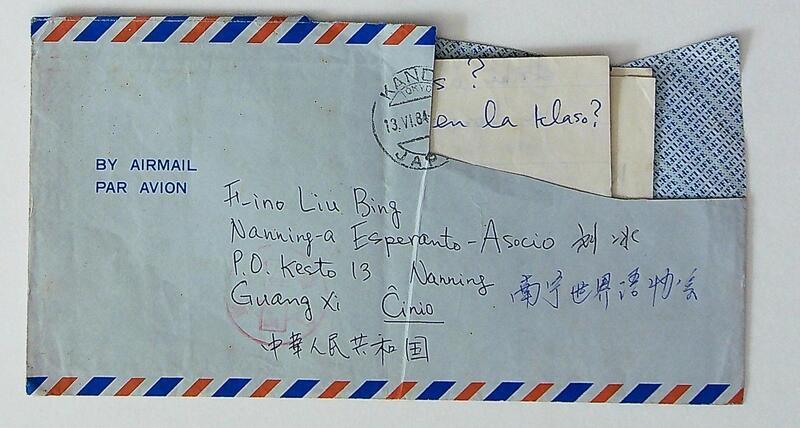 s ?
en la klaso?
KAND
TOKYO
13.VI.84
JAP
BY AIRMAIL
PAR AVION
F-ino Liu Bing
Nanning-a Esperanto-Asocio 刘冰
P.O. Kesto 13 Nanning
Guang Xi Ĉinio
南宁世界语协会
中華人民共和国